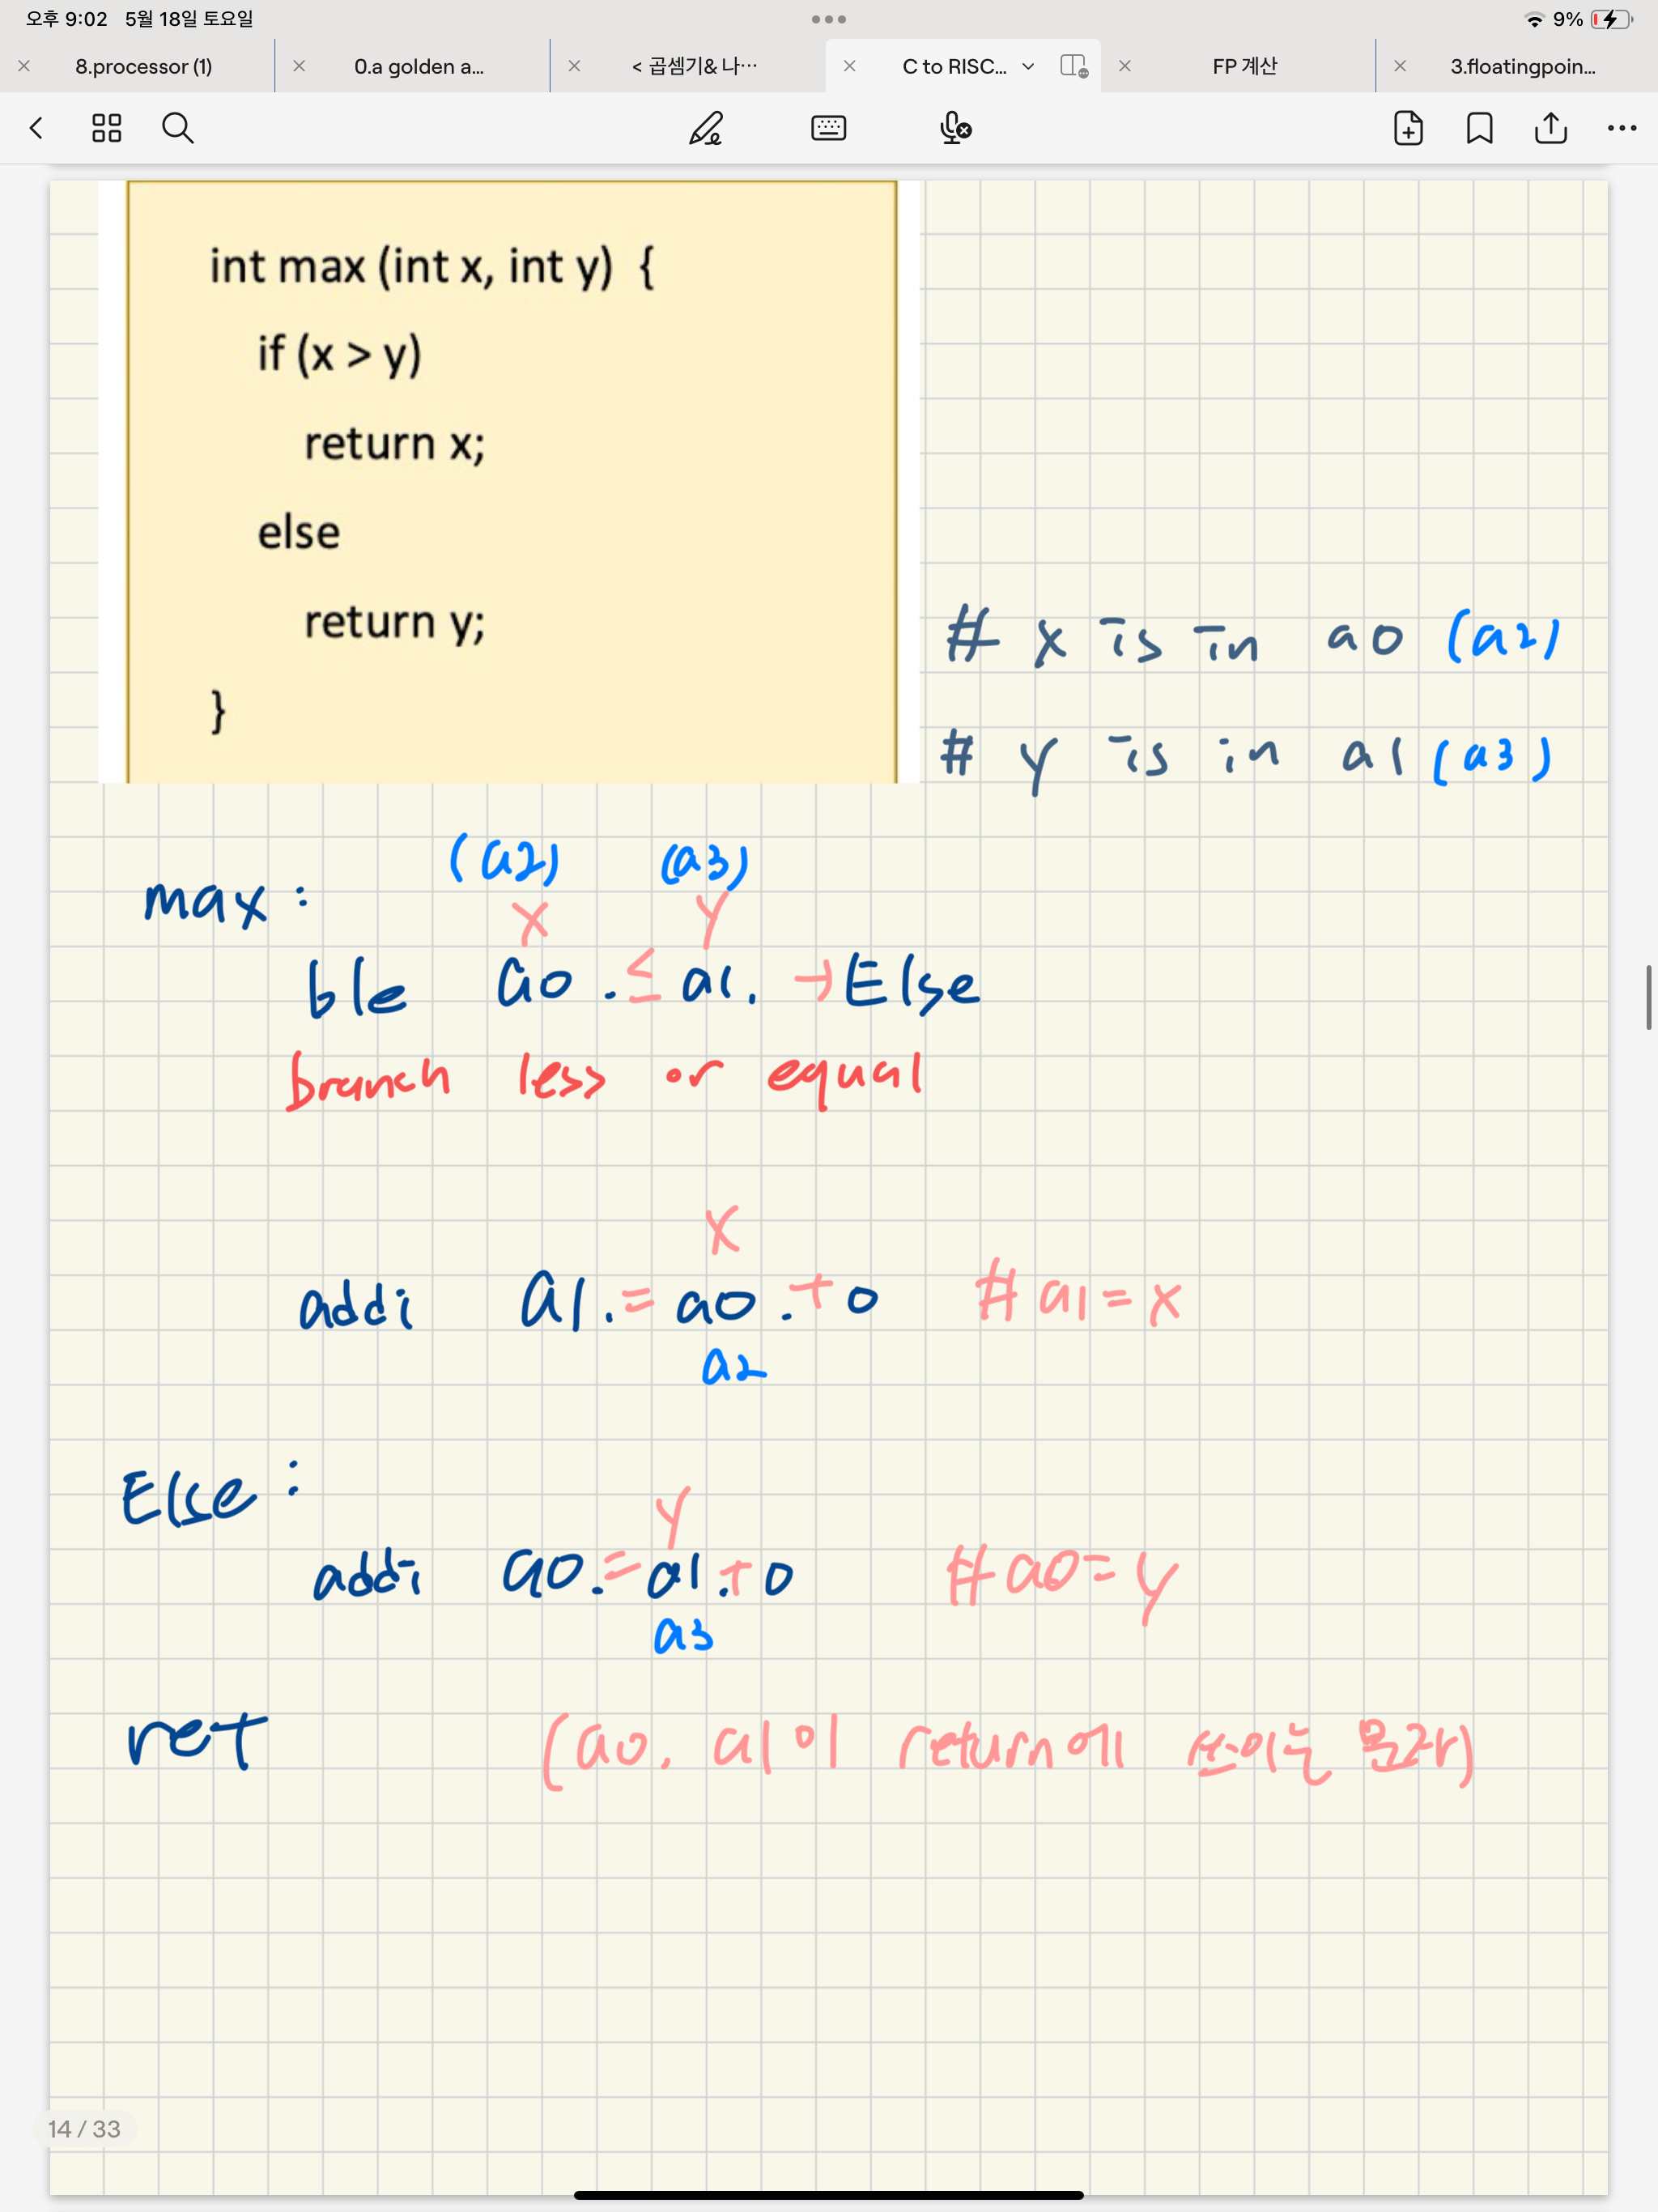 오후 9:02 5월 18일 토요일 9%
8.processor (1) 0.a golden a... < 곱셈기& 나… C to RISC... FP 계산 3.floatingpoin...
int max (int x, int y) {
if (x > y)
return x;
else
return y;
}
# x is in a0 (a2)
# y is in a1 (a3)
(a2) (a3)
max :
x y
ble a0 . ≤ a1 . → Else
branch less or equal
x
addi a1 . = a0 . + 0 # a1 = x
a2
Else :
y
addi a0 . = a1 . + 0 # a0 = y
a3
ret (a0, a1이 return에 쓰이는 문자)
14 / 33